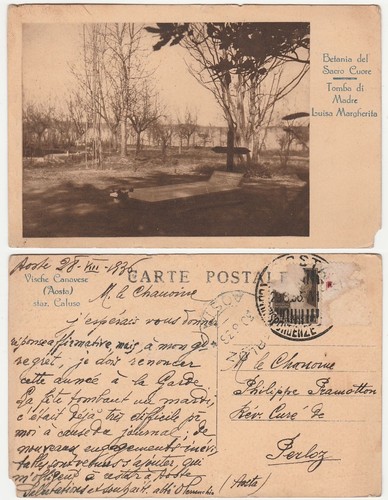 Betania del
Sacro Cuore
Tomba di
Madre
Luisa Margherita
Aoste 28-VIII-1936
Vische Canavese
(Aosta)
staz. Caluso
CARTE POSTALE
M. le Chanoine
j'espérais vous donner
réponse affirmative mais, à mon gd
regret, je dois renoncer
cette année à la Garde.
La fête tombant un mardi,
c'était déjà très difficile pr
moi à cause du journal; de
nouveaux engagements
sont venus s'ajouter qui
m'obligent à rester à Aoste
Salutations et souhaits
AOSTA
M le Chanoine
Philippe Pramotton
Rév. Curé de
Perloz
(Aosta)